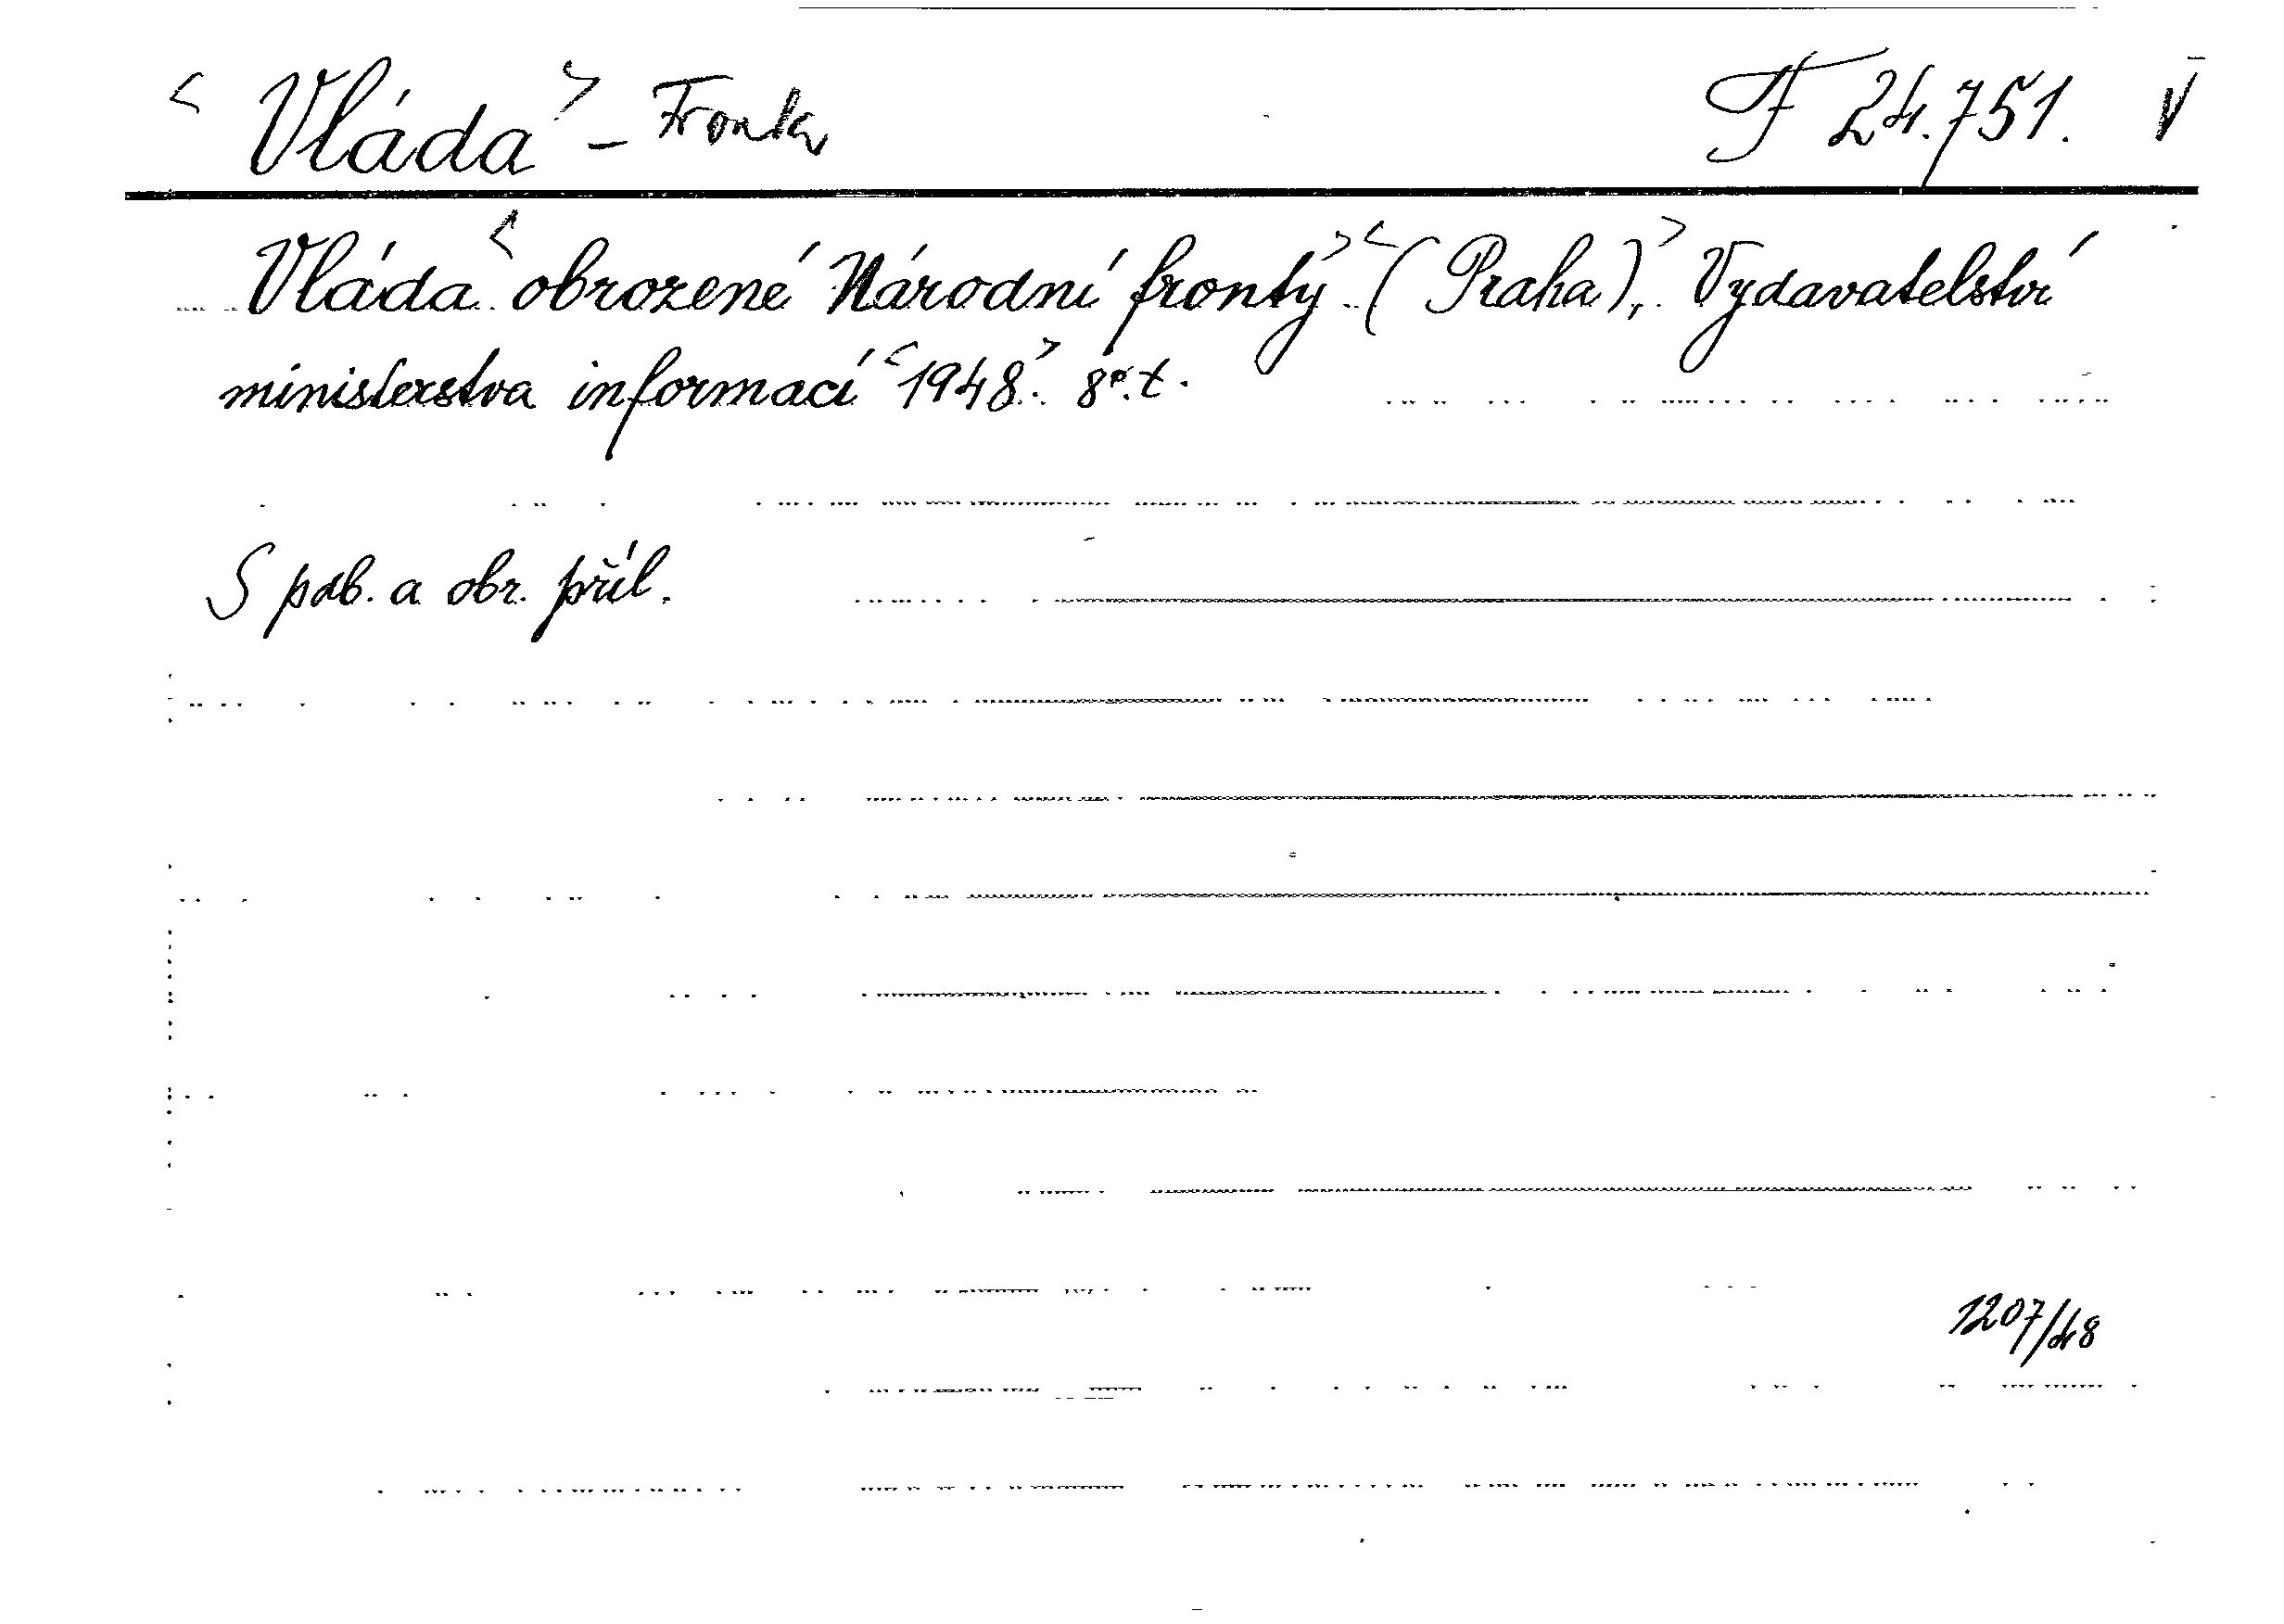 <Vláda> - Fronta F 24.751. V
Vláda <obrozené Národní fronty.> <(Praha),> Vydavatelství
ministerstva informací <1948.> 8°. t.
S pdb. a obr. příl.
1207/48